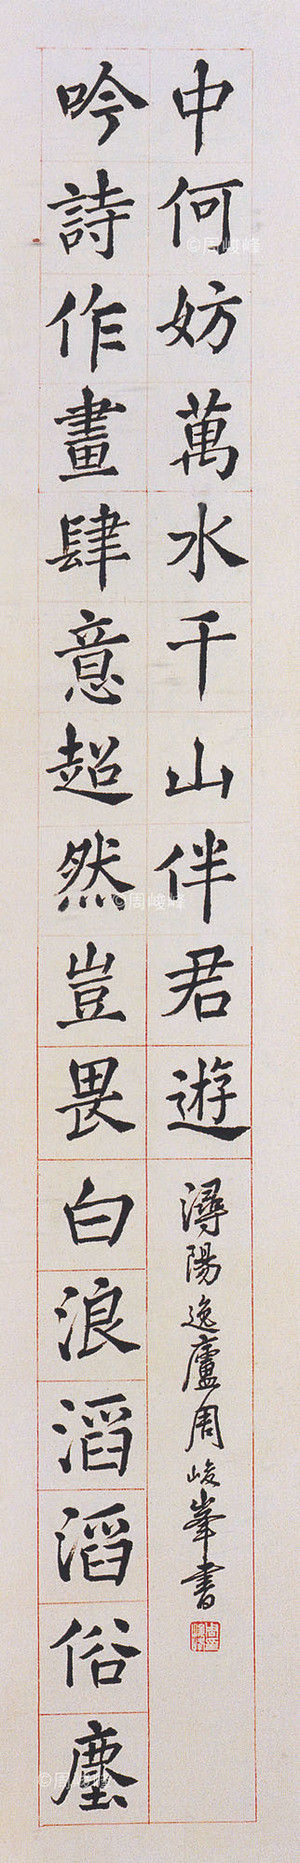 吟詩作畫肆意超然豈畏白浪滔滔俗塵
中何妨萬水千山伴君遊
潯陽逸廬周峻峯書
©周峻峰
©周峻峰
©周峻峰